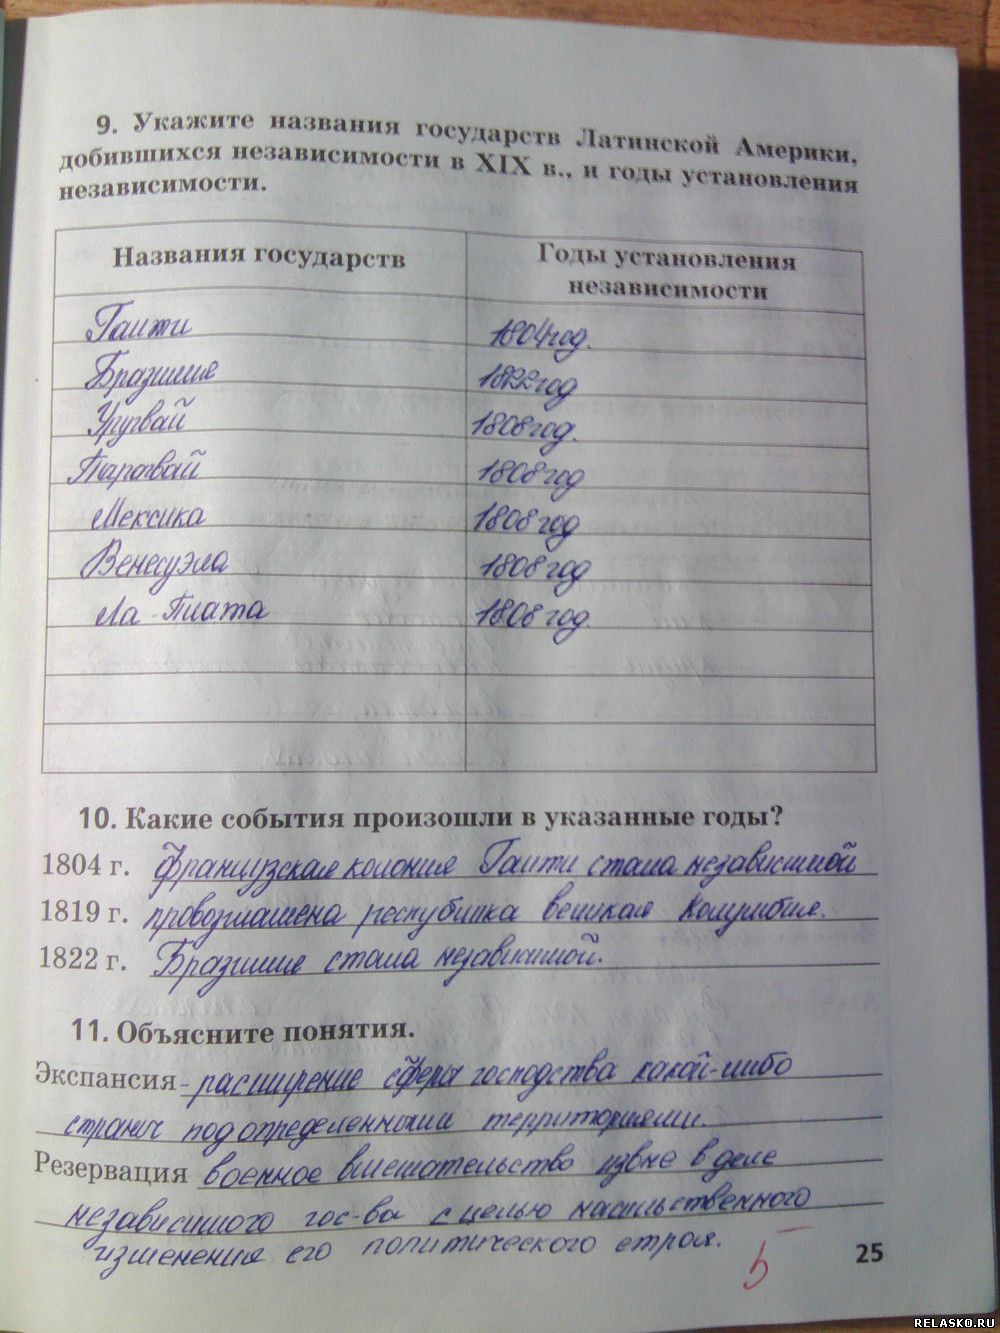 9. Укажите названия государств Латинской Америки,
добившихся независимости в XIX в., и годы установления
независимости.
Названия государств
Годы установления
независимости
Гаити 1804 год.
Бразилия 1822 год
Уругвай 1808 год.
Парагвай 1808 год
Мексика 1808 год
Венесуэла 1808 год
Ла-Плата 1808 год.
10. Какие события произошли в указанные годы?
1804 г. Французская колония Гаити стала независимой
1819 г. провозглашена республика великая Колумбия.
1822 г. Бразилия стала независимой.
11. Объясните понятия.
Экспансия - расширение сферы господства какой-либо
страны под определенными территориями.
Резервация военное вмешательство извне в дела
независимого гос-ва с целью насильственного
изменения его политического строя.
5
25
RELASKO.RU